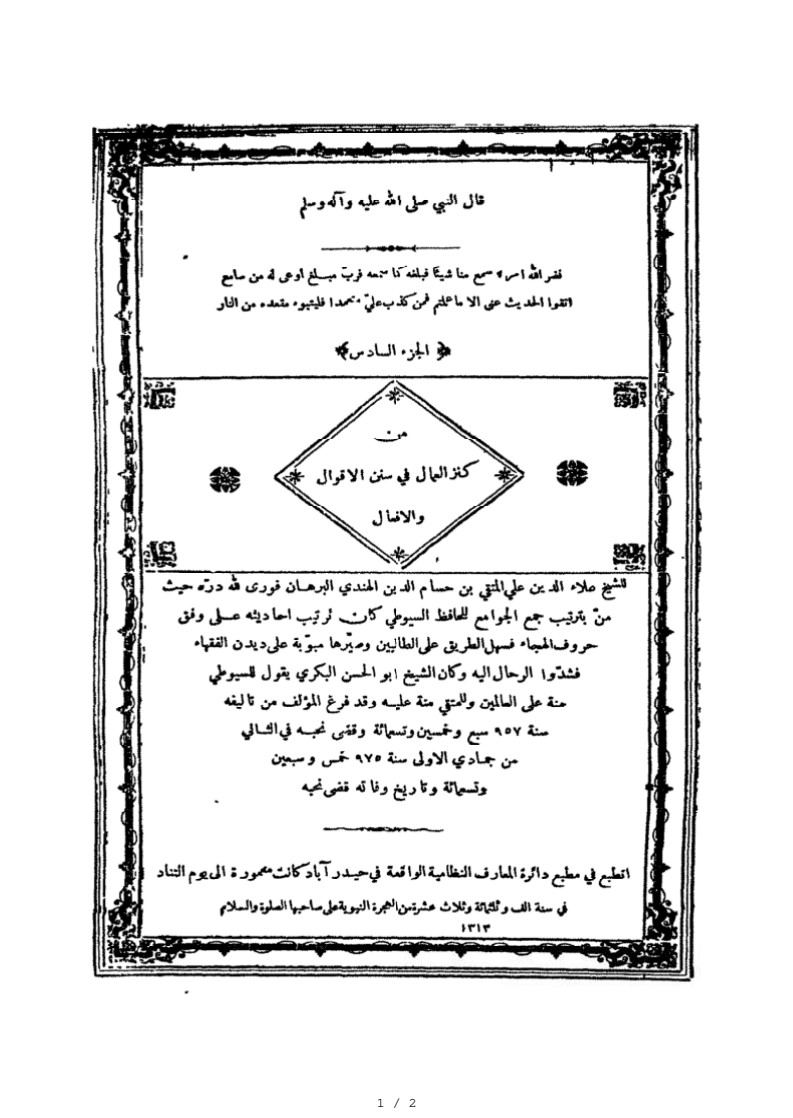 قال النبي صلى الله عليه وآله وسلم
نضر الله امرء سمع منا شيئا فبلغه كما سمعه فرب مبلغ اوعى له من سامع
اتقوا الحديث عنى الا ما علمتم فمن كذب علي متعمدا فليتبوء مقعده من النار
﴿ الجزء السادس ﴾
من
كنز العمال في سنن الاقوال
والافعال
للشيخ علاء الدين علي المتقي بن حسام الدين الهندي البرهان فورى لله درّه حيث
منّ بترتيب جمع الجوامع للحافظ السيوطي كان ترتيب احاديثه على وفق
حروف الهجاء فسهل الطريق على الطالبين وصيّرها مبوّبة على ديدن الفقهاء
فشدّوا الرحال اليه وكان الشيخ ابو الحسن البكري يقول للسيوطي
منة على العالمين وللمتقي منة عليه وقد فرغ المؤلف من تاليفه
سنة ٩٥٧ سبع وخمسين وتسمائة وقضى نحبه في الثاني
من جمادي الاولى سنة ٩٧٥ خمس وسبعين
وتسمائة وتاريخ وفاته قضى نحبه
انطبع في مطبع دائرة المعارف النظامية الواقعة في حيدر آباد كانت معمورة الى يوم التناد
في سنة الف وثلثمائة وثلاث عشرة من الهجرة النبوية على صاحبها الصلوة والسلام
١٣١٣
1 / 2